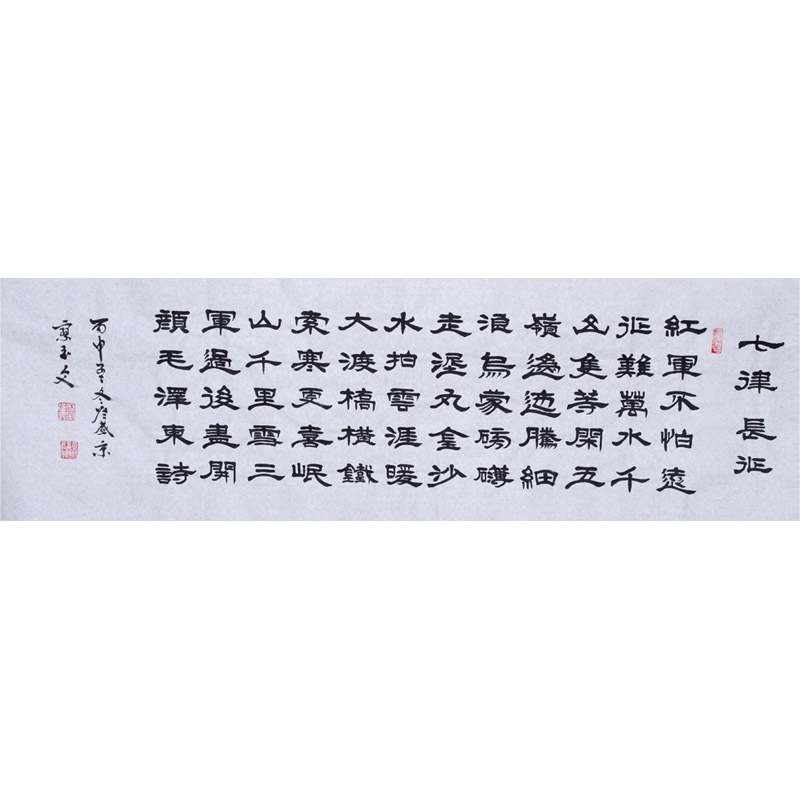 七律 長征
紅軍不怕遠
征難萬水千
山隻等閑五
嶺逶迤騰細
浪烏蒙磅礴
走泥丸金沙
水拍雲涯暖
大渡橋橫鐵
索寒更喜岷
山千里雪三
軍過後盡開
顏毛澤東詩
丙申冬於盛京
玉文